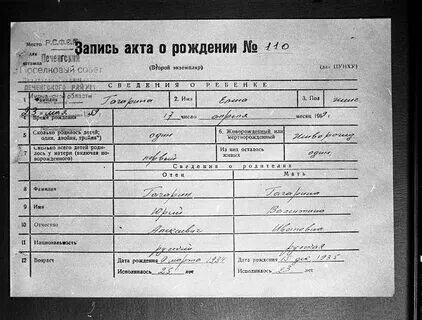 Место для штампа
Р.С.Ф.С.Р.
Печенгский
поселковый совет
ПЕЧЕНГСКОГО РАЙОНА
области
Запись акта о рождении № 110
(Второй экземпляр)
(для ЦУНХУ)
СВЕДЕНИЯ О РЕБЕНКЕ
1 Фамилия Гагарина 2. Имя Елена 3. Пол жен
Время рождения 17 число апреля месяц
5 Сколько родилось детей: один, двойни, тройни один 6. Живорожденный или мертворожденный
7 Сколько всего детей родилось у матери (включая новорожденного) первый Из них осталось живых один
Сведения о родителях
Отец Мать
8 Фамилия Гагарин Гагарина
9 Имя Юрий Валентина
10 Отчество Алексеевич Ивановна
11 Национальность русский русская
12 Возраст Дата рождения 9 марта 1934 Дата рождения 15 дек. 1935
Исполнилось 25 лет Исполнилось 23 лет